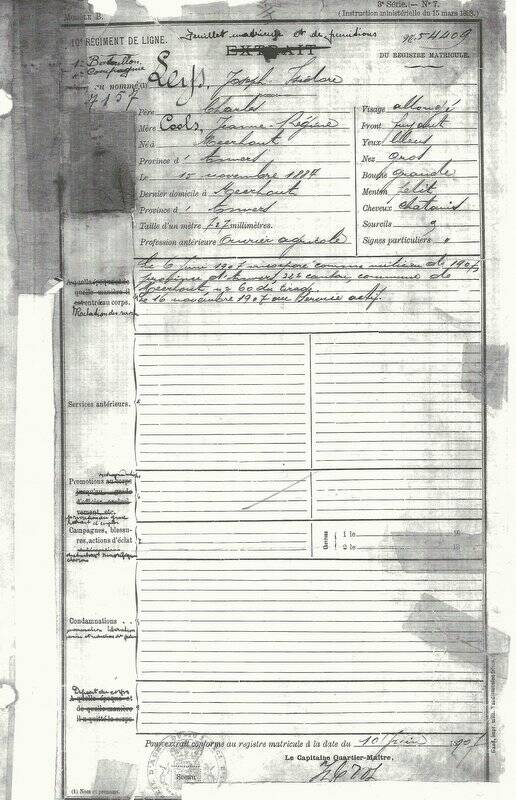 MODÈLE B.
3e Série. — N° 7.
(Instruction ministérielle du 15 mars 1888.)
10e RÉGIMENT DE LIGNE.
Feuillet matricule et de punitions
EXTRAIT
54409
DU REGISTRE MATRICULE.
1r Bataillon
Compagnie
7157
Leys, Joseph Isidore
Père Charles
Mère Cools, Jeanne-Régine
Né à Meerhout
Province d' Anvers
Le 15 novembre 1887
Dernier domicile à Meerhout
Province d' Anvers
Taille d'un mètre 727 millimètres.
Profession antérieure Ouvrier agricole
Visage allongé
Front fuyant
Yeux bleus
Nez gros
Bouche grande
Menton petit
Cheveux chatains
Sourcils
Signes particuliers "
Le 6 juin 1907 incorporé comme milicien de 1907
province d'Anvers, 33e canton, commune de
Meerhout, n° 60 du tirage.
Le 16 novembre 1907 au Service actif.
est entré au corps.
Services antérieurs.
Promotions
Campagnes, blessures, actions d'éclat
1 le
2 le
Condamnations
Départ du corps
à quelle époque et
de quelle manière
il a quitté le corps
Pour extrait conforme au registre matricule à la date du 10 juin 1907
Le Capitaine Quartier-Maître,
(1) Nom et prénoms.